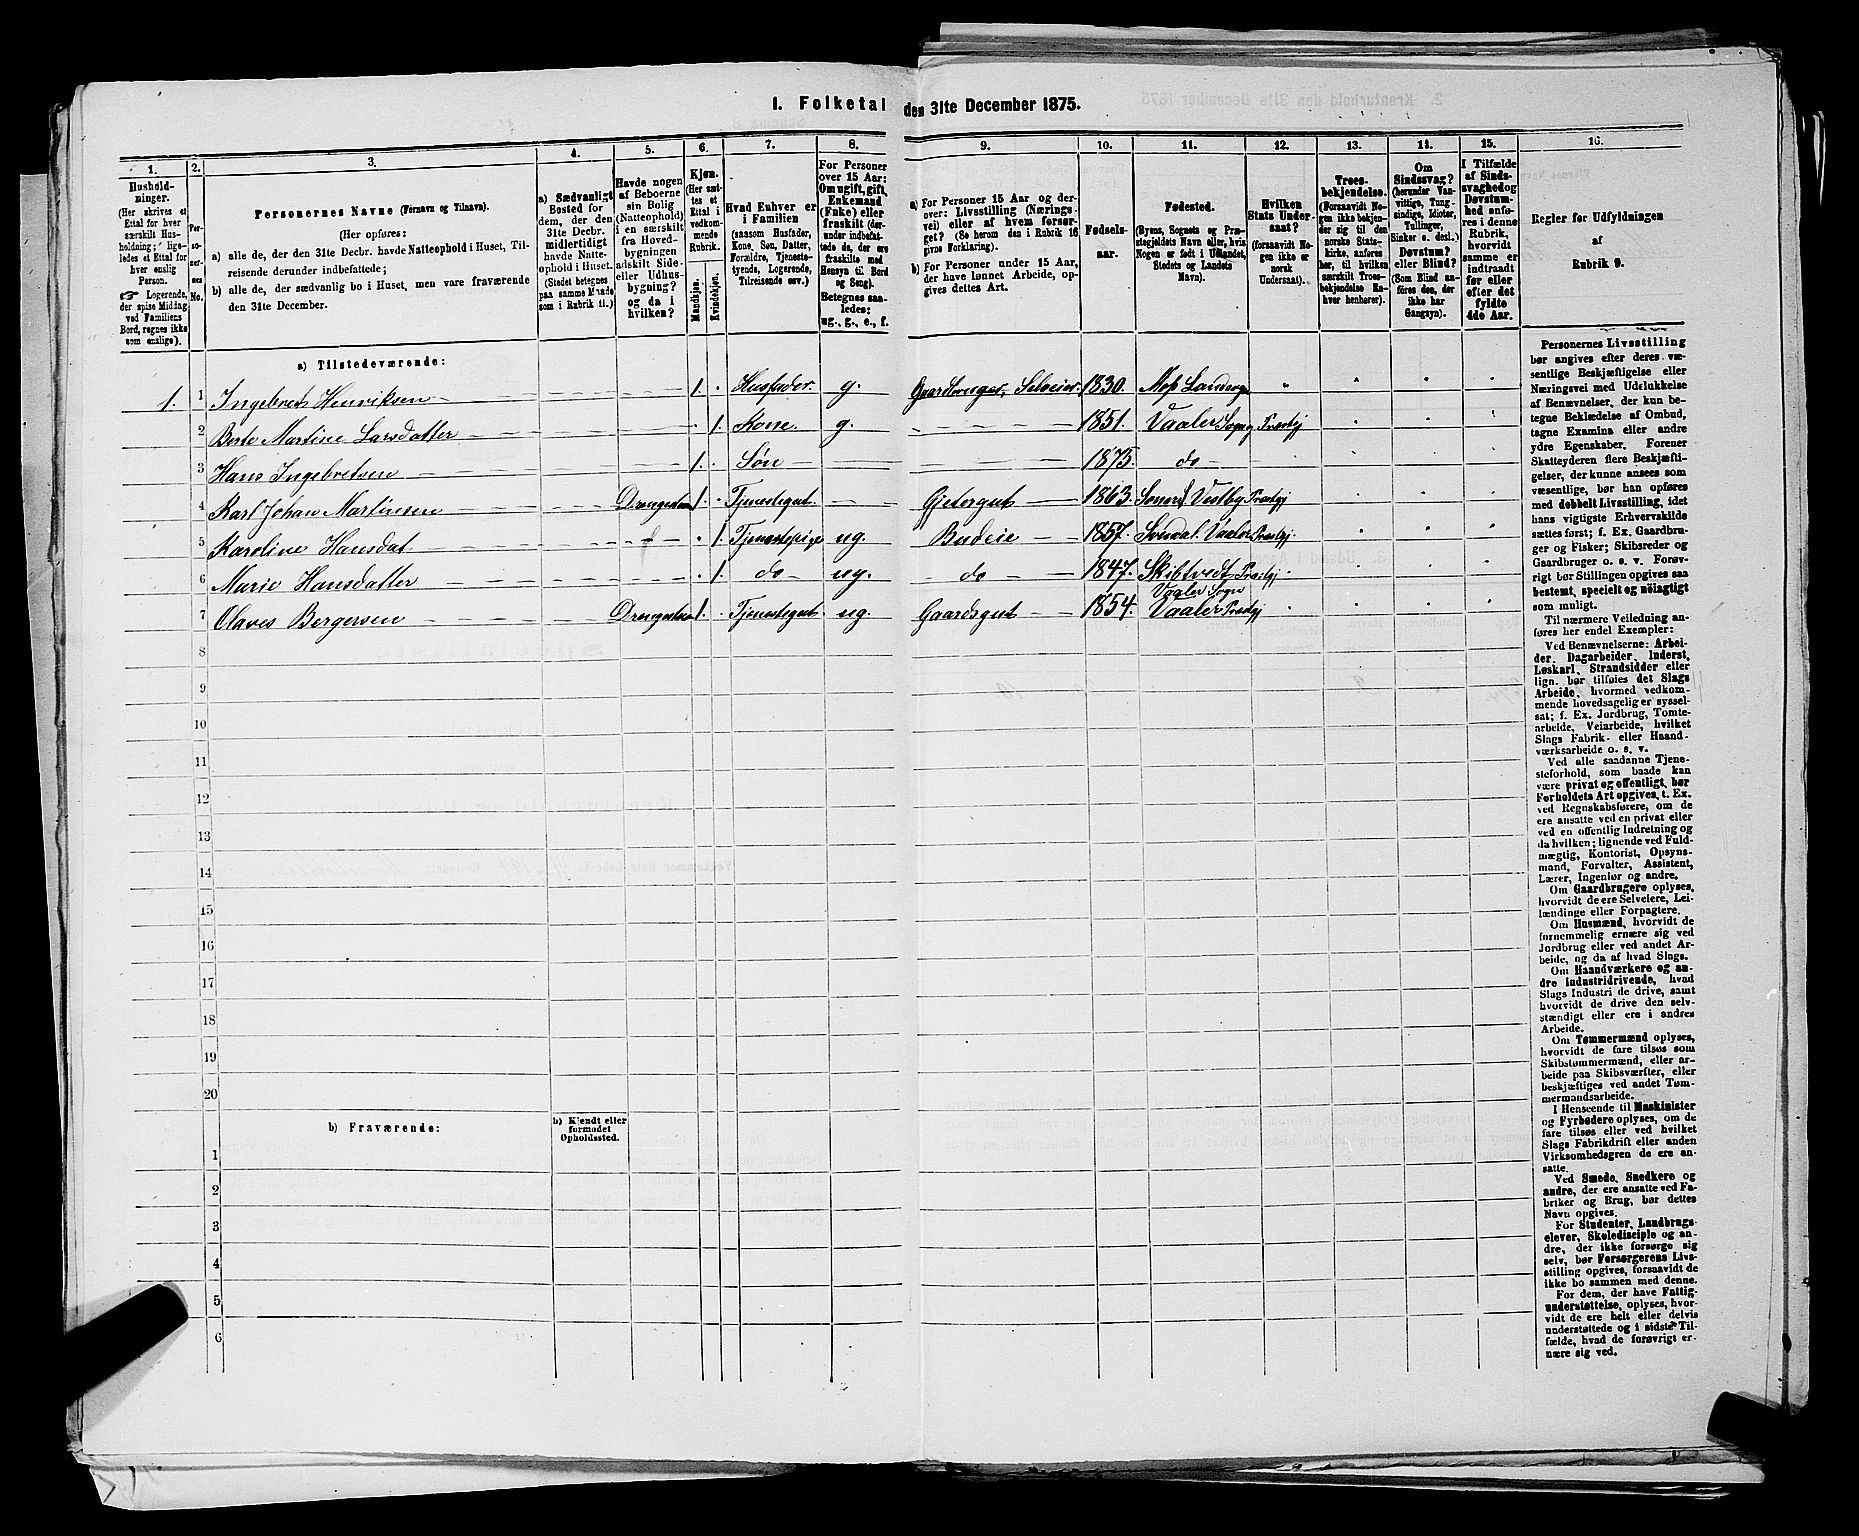 I. Folketal den 31te December 1875.
1. 2. 3. 4. 5. 6. 7. 8. 9. 10. 11. 12. 13. 14. 15. 16.
Hushold-
ninger.
(Her skrives et
Ettal for hver
særskilt Hus-
holdning; lige-
ledes et Ettal for
hver enslig
Person.
☞ Logerende,
der spise Middag
ved Familiens
Bord, regnes ikke
som enslige).
Per-
so-
ner-
nes
No.
Personernes Navne (Fornavn og Tilnavn).
(Her opføres:
a) alle de, der den 31te Decbr. havde Natteophold i Huset, Til-
reisende derunder indbefattede;
b) alle de, der sædvanlig bo i Huset, men vare fraværende
den 31te December.
a) Sædvanligt
Bosted for
dem, der den
31te Decbr.
midlertidigt
havde Natte-
ophold i Huset.
(Stedet betegnes
paa samme Maade
som i Rubrik 11.)
Havde nogen
af Beboerne
sin Bolig
(Natteophold)
i en særskilt
fra Hoved-
bygningen
adskilt Side-
eller Udhus-
bygning?
og da i
hvilken?
Kjøn.
(Her sæt-
tes et
Ettal i
vedkom-
mende
Rubrik.
Mandkjøn.
Kvindekjøn.
Hvad Enhver er
i Familien
(saasom Husfader,
Kone, Søn, Datter,
Forældre, Tjeneste-
tyende, Logerende,
Tilreisende osv.)
For Personer
over 15 Aar:
Om ugift, gift,
Enkemand
(Enke) eller
fraskilt (der-
under indbefat-
tede de, der ere
fraskilte med
Hensyn til Bord
og Seng).
Betegnes saa-
ledes:
ug., g., e., f.
a) For Personer 15 Aar og der-
over: Livsstilling (Nærings-
vei) eller af hvem forsør-
get? (Se herom den i Rubrik 16
givne Forklaring).
b) For Personer under 15 Aar,
der have lønnet Arbeide, op-
gives dettes Art.
Fødsels-
aar.
Fødested.
(Byens, Sognets og Præ-
stegjeldets Navn eller, hvis
Nogen er født i Udlandet,
Stedets og Landets
Navn).
Hvilken
Stats Under-
saat?
(forsaavidt No-
gen ikke er
norsk
Undersaat).
Troes-
bekjendelse.
(Forsaavidt No-
gen ikke bekjen-
der sig til den
norske Stats-
kirke, anføres
her, til hvilken
særskilt Troes-
bekjendelse En-
hver henhører).
Om
Sindssvag?
(herunder Van-
vittige, Tung-
sindige, Idioter,
Tullinger,
Sinker o. desl.)
Døvstum?
eller Blind?
(Som Blind an-
føres den, der
ikke har
Gangsyn).
I Tilfælde
af Sinds-
svaghed og
Døvstum-
hed anfø-
res i denne
Rubrik,
hvorvidt
samme er
indtraadt
før eller
efter det
fyldte
4de Aar.
Regler for Udfyldningen
af
Rubrik 9.
a) Tilstedeværende:
1. 1 Ingebret Henriksen 1. Husfader g. Gaardbruger, Selveier 1830. Moss Landsogn
2 Berte Martine Larsdatter 1. Kone g. 1851. Vaaler Sogn Præstgj
3 Hans Ingebretsen 1. Søn 1875. do
4 Karl Johan Martinsen 1. Tjenestegut Gjetergut 1863. Vestby Præstgj
5 Karoline Hansdat 1. Tjenestepige ug. Budeie 1857. Svindal. Vaaler Præstgj.
6 Marie Hansdatter 1. do ug. do 1847. Skibtvedt Præstgj
7 Olaves Bergersen 1. Tjenestegut ug. Gaardsgut 1854. Vaaler Sogn Vaaler Præstgj
8
9
10
11
12
13
14
15
16
17
18
19
20
b) Fraværende:
b) Kjendt eller
formodet
Opholdssted.
1
2
3
4
5
6
Personernes Livsstilling
bør angives efter deres væ-
sentlige Beskjæftigelse eller
Næringsvei med Udelukkelse
af Benævnelser, der kun be-
tegne Beklædelse af Ombud,
tagne Examina eller andre
ydre Egenskaber. Forener
Skatteyderen flere Beskjæfti-
gelser, der kunne ansees som
væsentlige, bør han opføres
med dobbelt Livsstilling, idet
hans vigtigste Erhvervskilde
sættes først; f. Ex. Gaardbru-
ger og Fisker; Skibsreder og
Gaardbruger o. s. v. Forøv-
rigt bør Stillingen opgives saa
bestemt, specielt og nøiagtigt
som muligt.
Til nærmere Veiledning an-
føres her endel Exempler:
Ved Benævnelserne: Arbei-
der, Dagarbeider, Inderst,
Løskarl, Strandsidder eller
lign. bør tilføies det Slags
Arbeide, hvormed vedkom-
mende hovedsagelig er syssel-
sat; f. Ex. Jordbrug, Tomte-
arbeide, Veiarbeide, hvilket
Slags Fabrik- eller Haand-
værksarbeide o. s. v.
Ved alle saadanne Tjene-
steforhold, som baade kan
være privat og offentligt, bør
Forholdets Art opgives, t. Ex.
ved Regnskabsførere, om de
ere ansatte ved en privat eller
ved en offentlig Indretning og
da hvilken; lignende ved Fuld-
mægtig, Kontorist, Opsyns-
mand, Forvalter, Assistent,
Lærer, Ingeniør og andre.
Om Gaardbrugere oplyses,
hvorvidt de ere Selveiere, Lei-
lændinge eller Forpagtere.
Om Husmænd, hvorvidt de
fornemmelig ernære sig ved
Jordbrug eller ved andet Ar-
beide, og da af hvad Slags.
Om Haandværkere og an-
dre Industridrivende, hvad
Slags Industri de drive, samt
hvorvidt de drive den selv-
stændigt eller ere i andres
Arbeide.
Om Tømmermænd oplyses,
hvorvidt de fare tilsøs som
Skibstømmermænd, eller ar-
beide paa Skibsværfter, eller
beskjæftiges ved andet Tøm-
mermandsarbeide.
I Henseende til Maskinister
og Fyrbødere oplyses, om de
fare tilsøs eller ved hvilket
Slags Fabrikdrift eller anden
Virksomhedsgren de ere an-
satte.
Ved Smede, Snedkere og
andre, der ere ansatte ved Fa-
briker og Brug, bør dettes
Navn opgives.
For Studenter, Landbrugs-
elever, Skoledisciple og an-
dre, der ikke forsørge sig
selv, bør Forsørgerens Livs-
stilling opgives, forsaavidt de
ikke bo sammen med denne.
For dem, der have Fattig-
understøttelse, oplyses, hvor-
vidt de ere helt eller delvis
understøttede og i sidste Til-
fælde, hvad de forøvrigt er-
nære sig ved.